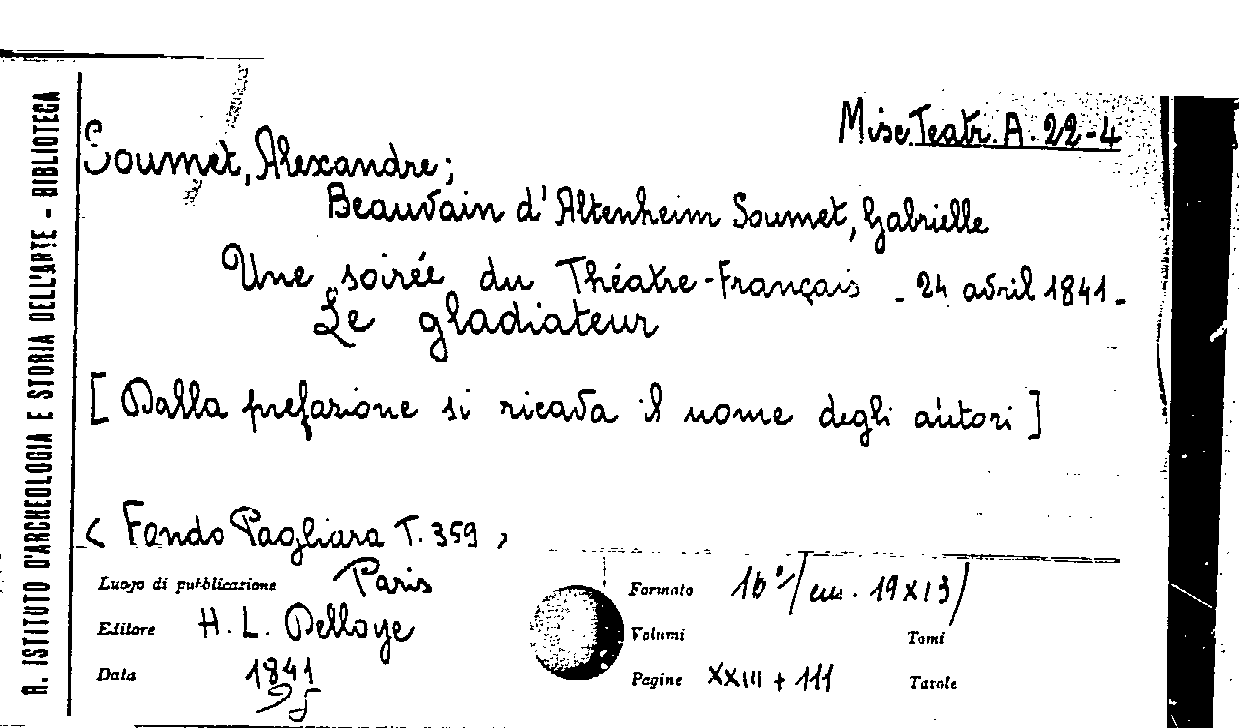 R. ISTITUTO D'ARCHEOLOGIA E STORIA DELL'ARTE - BIBLIOTECA
Misc. Teatr. A. 22-4
Soumet, Alexandre;
Beauvain d'Altenheim Soumet, Gabrielle
Une soirée du Théatre-Français - 24 avril 1841 -
Le gladiateur
[Dalla prefazione si ricava il nome degli autori]
< Fondo Pagliara T. 359 >
Luogo di pubblicazione Paris
Editore H. L. Delloye
Data 1841
Formato 16°/(cm. 19x13)
Volumi Tomi
Pagine XXIII + 111 Tavole